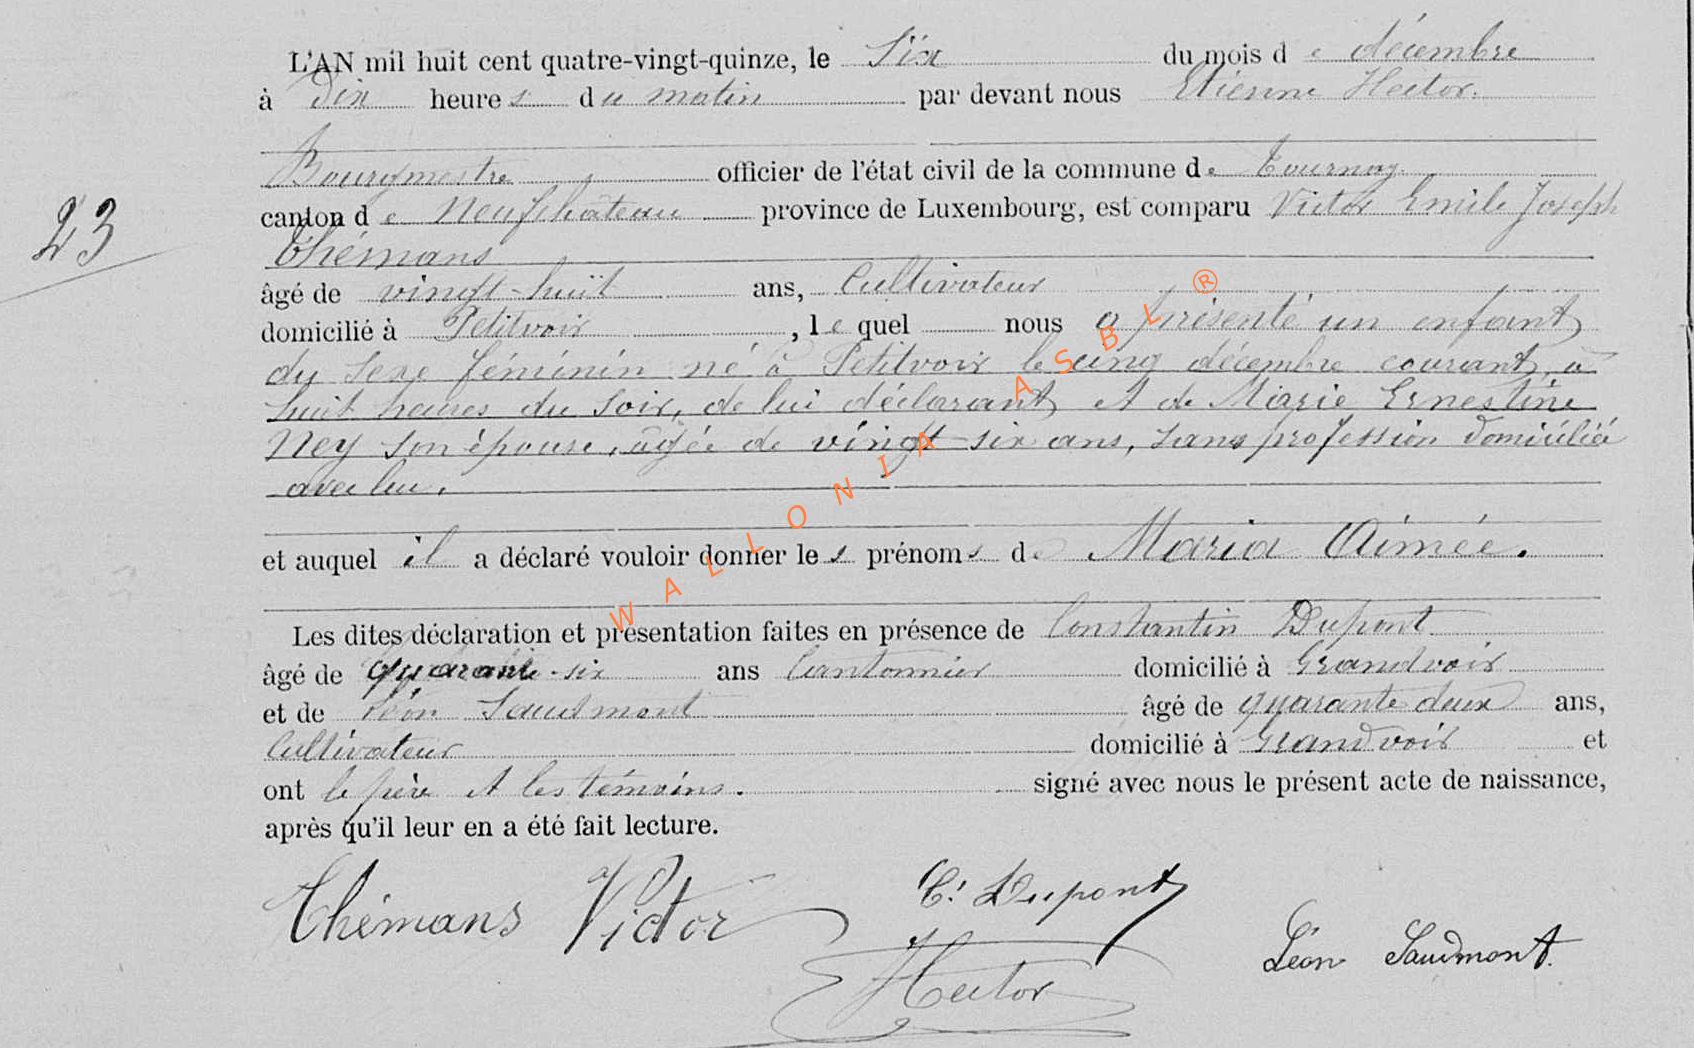 L'AN mil huit cent quatre-vingt-quinze, le Six du mois de décembre
à Dix heures du matin par devant nous Etienne Hector.
Bourgmestre officier de l'état civil de la commune de Tournay.
23
canton de Neufchâteau province de Luxembourg, est comparu Victor Emile Joseph
Thémans
âgé de vingt-huit ans, Cultivateur
domicilié à Petitvoir, lequel nous a présenté un enfant
du sexe féminin né à Petitvoir le cinq décembre courant, à
huit heures du soir, de lui déclarant et de Marie Ernestine
Ney son épouse, âgée de vingt-six ans, sans profession domiciliée
avec lui.
et auquel il a déclaré vouloir donner les prénoms de Maria Aimée.
Les dites déclaration et présentation faites en présence de Constantin Dupont
âgé de quarante-six ans Cantonnier domicilié à Grandvoir
et de Léon Saudmont âgé de quarante deux ans,
Cultivateur domicilié à Grandvoir et
ont le père et les témoins. signé avec nous le présent acte de naissance,
après qu'il leur en a été fait lecture.
Thémans Victor C. Dupont
Hector Léon Saudmont.
WALLONIA ASBL ®